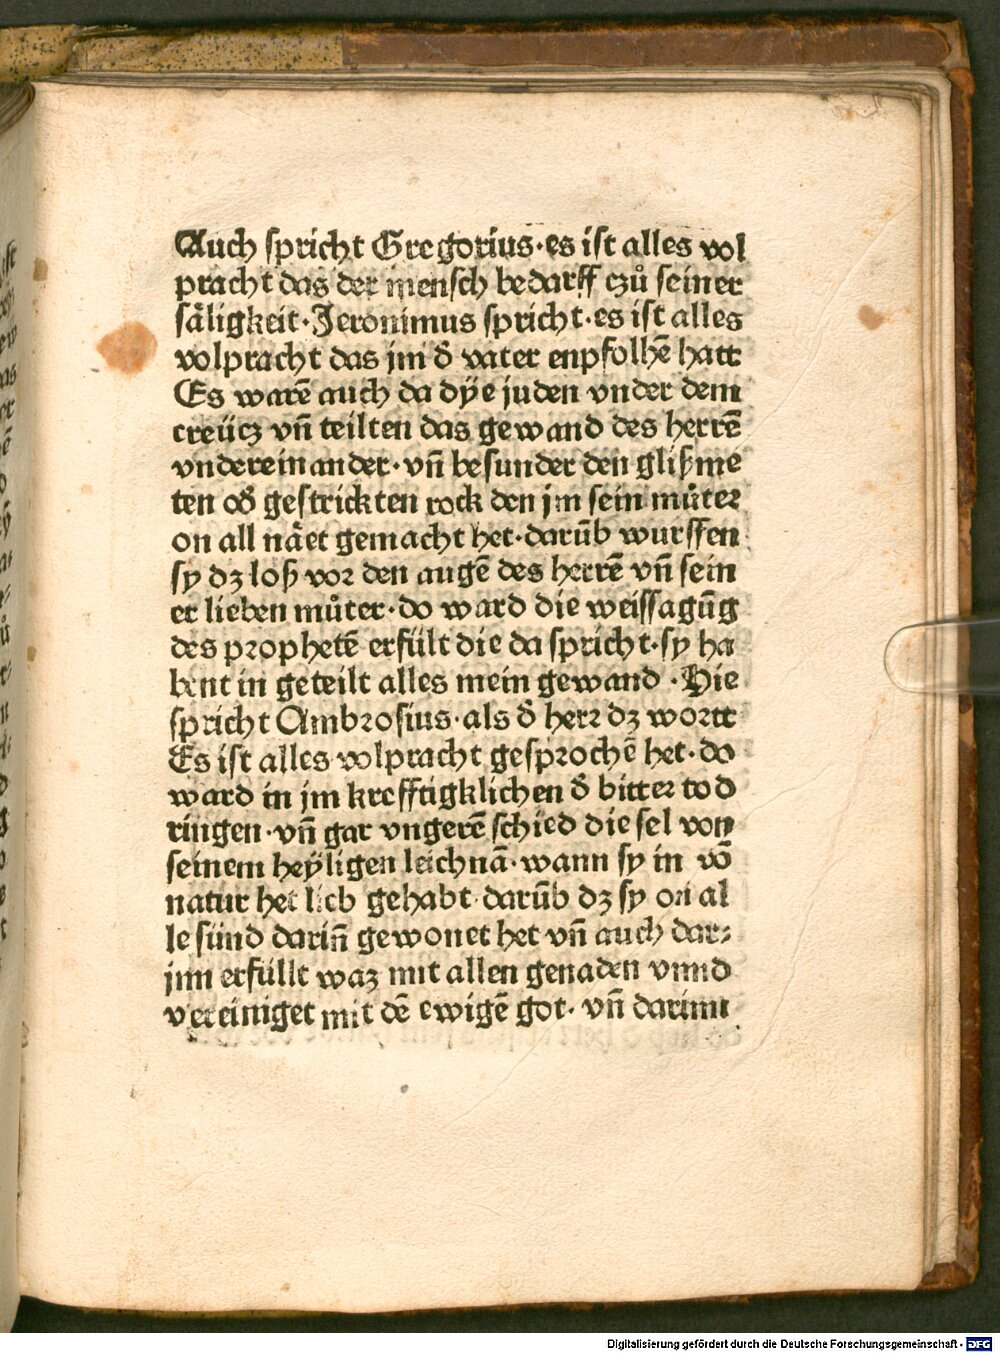 Auch ſpricht Gregorius·es iſt alles vol
pracht das der menſch bedarff czů ſeiner
ſäligkeit·Jeronimus ſpricht·es iſt alles
volpracht das jm d̕ vater enpfolhē hatt
Es warē auch da dÿe juden vnder dem
creücz vñ teilten das gewand des herrē
vndereinander·vñ beſunder den gliſzme
ten od̕ geſtrickten rock den jm ſein můter
on all näet gemacht het·darūb wurffen
ſy dz loſz vor den augē des herrē vñ ſein
er lieben můter·do ward die weiſſagūg
des prophetē erfült die da ſpricht·ſy ha
bent in geteilt alles mein gewand·Hie
ſpricht Ambroſius·als d̕ herr dz wortt
Es iſt alles volpracht geſprochē het·do
ward in jm krefftigklichen d̕ bitter tod
ringen·vñ gar vngerē ſchied die ſel von
ſeinem heÿligen leichnā·wann ſy in vō
natur het lieb gehabt·darūb dz ſy on al
le ſünd dariñ gewonet het vñ auch dar⸗
jnn erfüllt waz mit allen genaden vnnd
vereiniget mit dē ewigē got·vñ darinn
Digitalisierung gefördert durch die Deutsche Forschungsgemeinschaft - DFG